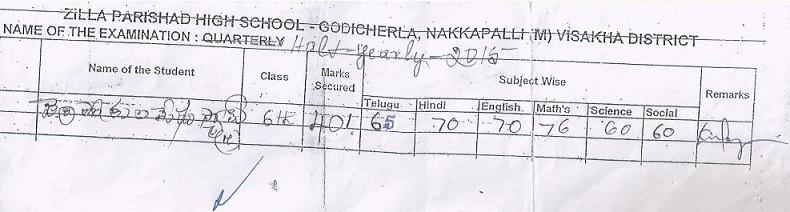 ZILLA PARISHAD HIGH SCHOOL - GODICHERLA, NAKKAPALLI (M) VISAKHA DISTRICT
NAME OF THE EXAMINATION : QUARTERLY Half-yearly-2015
Name of the Student Class Marks Secured Subject Wise Remarks
Telugu Hindi English. Math's Science Social
6th 401 65 70 70 76 60 60